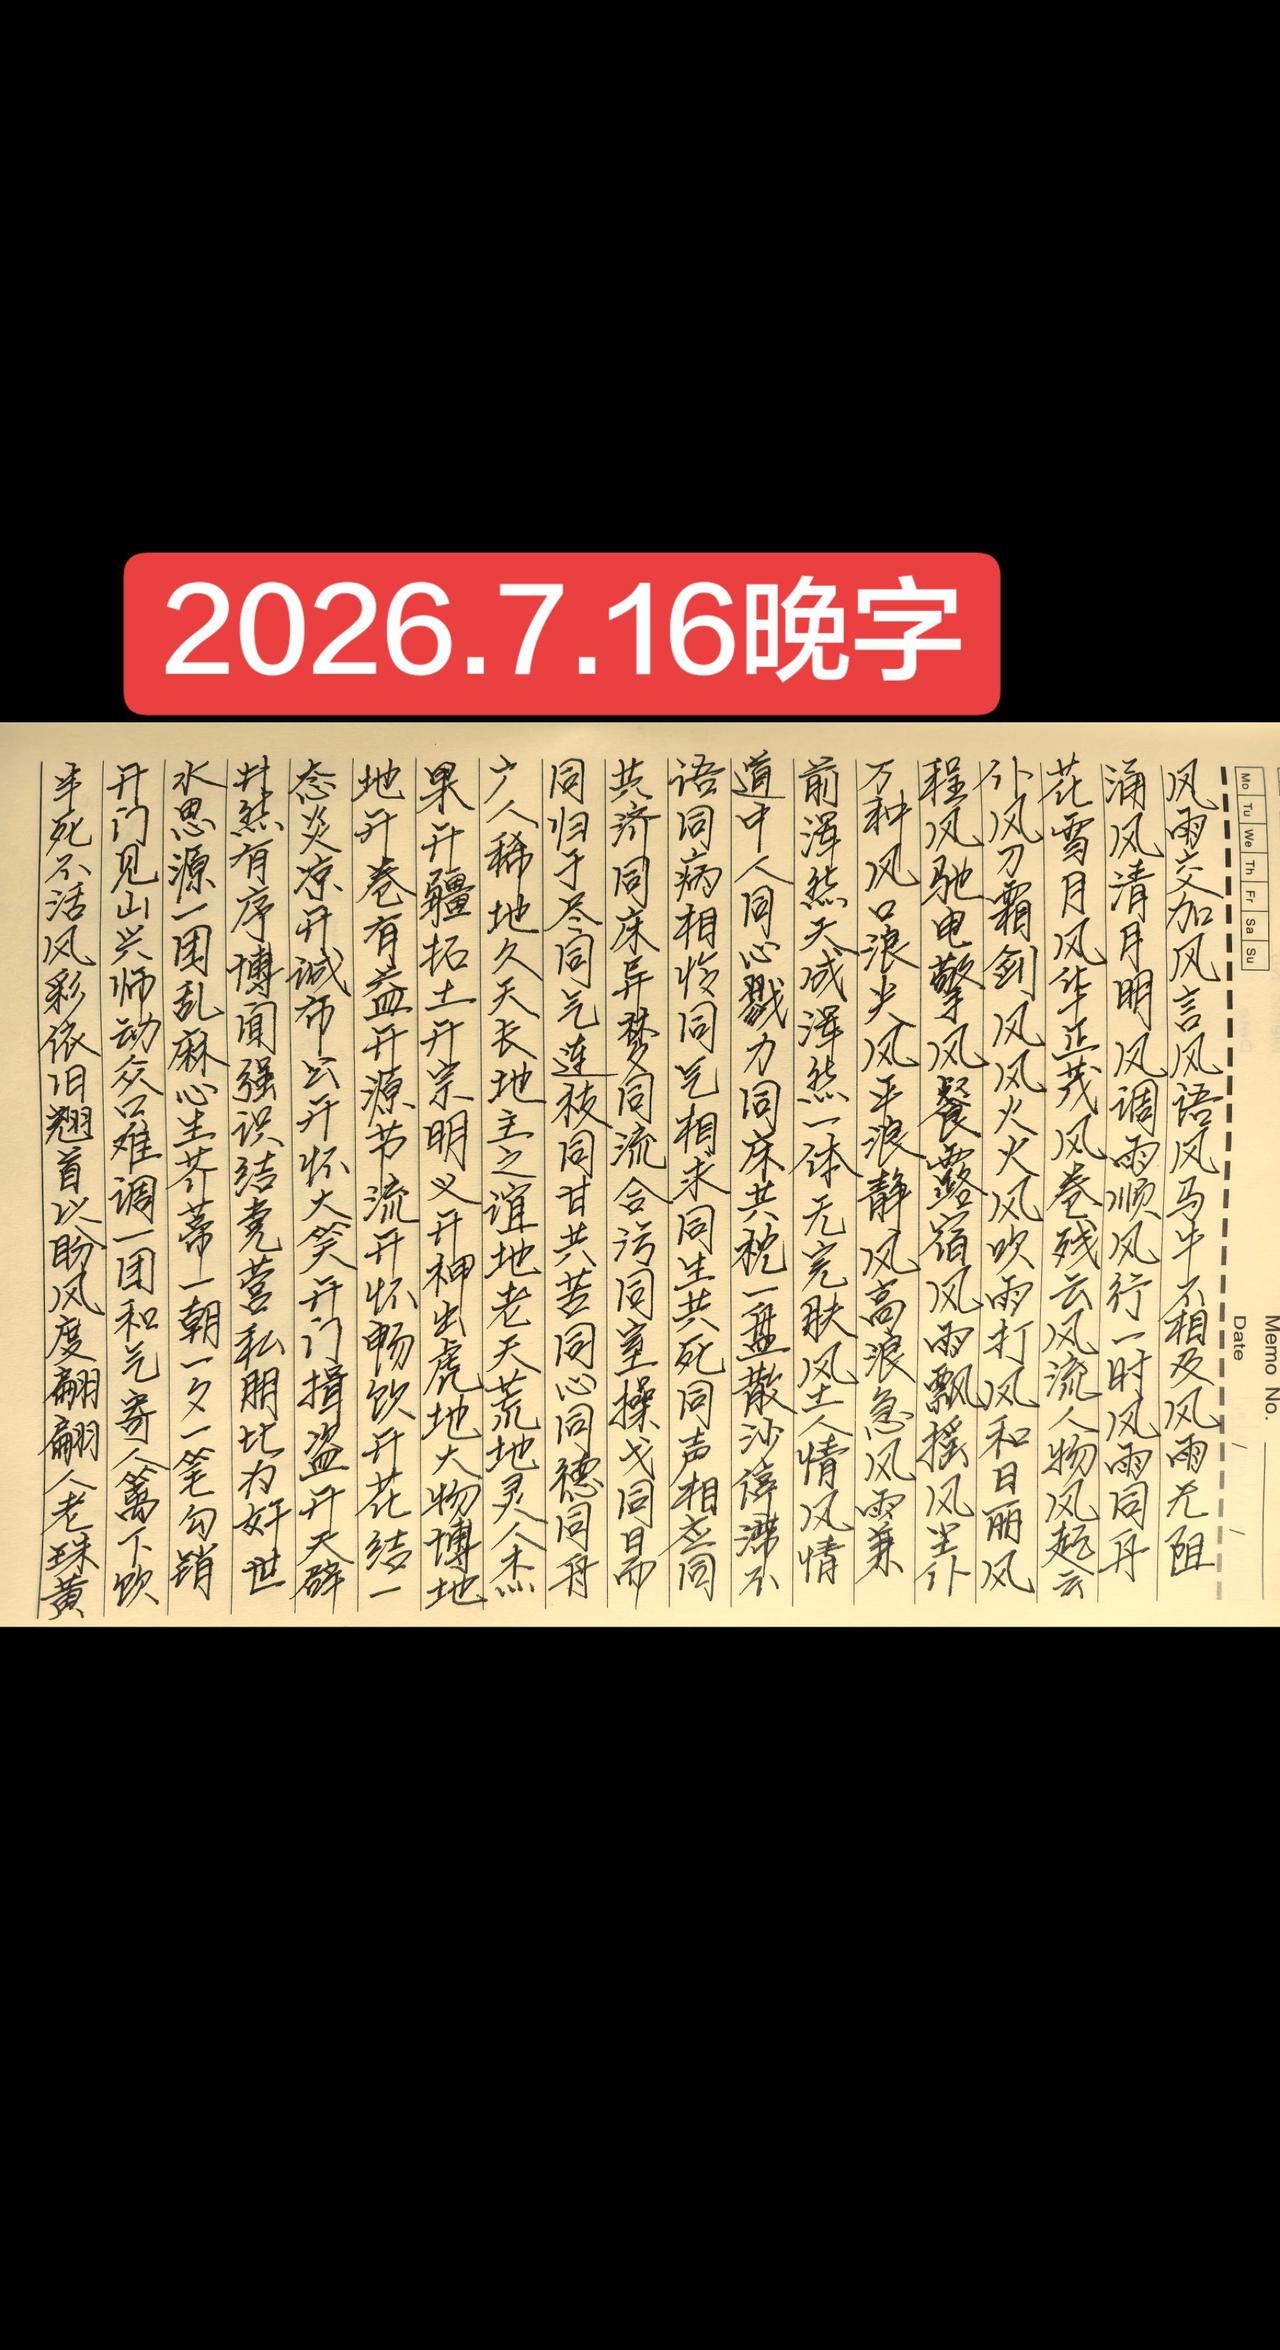 2026.7.16晚字
Memo No.
Date / /
Mo Tu We Th Fr Sa Su
风雨交加风言风语风马牛不相及风雨无阻
涌风清月明风调雨顺风行一时风雨同舟
花雪月风华正茂风卷残云风流人物风起云
仆风刀霜剑风风火火风吹雨打风和日丽风
程风驰电掣风餐露宿风雨飘摇风尘仆
万种风口浪尖风平浪静风高浪急风雨兼
前浑然天成浑然一体无完肤风土人情风情
道中人同心戮力同床共枕一盘散沙停滞不
语同病相怜同气相求同生共死同声相应同
共济同床异梦同流合污同室操戈同日而
同归于尽同气连枝同甘共苦同心同德同舟
广人稀地久天长地主之谊地老天荒地灵人杰
果开疆拓土开宗明义开神出虎地大物博地
地开卷有益开源节流开怀畅饮开花结一
念炎凉开诚布公开怀大笑开门揖盗开天辟
井然有序博闻强识结党营私朋比为奸世
水思源一团乱麻心生芥蒂一朝一夕一笔勾销
开门见山兴师动众口难调一团和气寄人篱下饮
半死不活风彩依旧翘首以盼风度翩翩人老珠黄